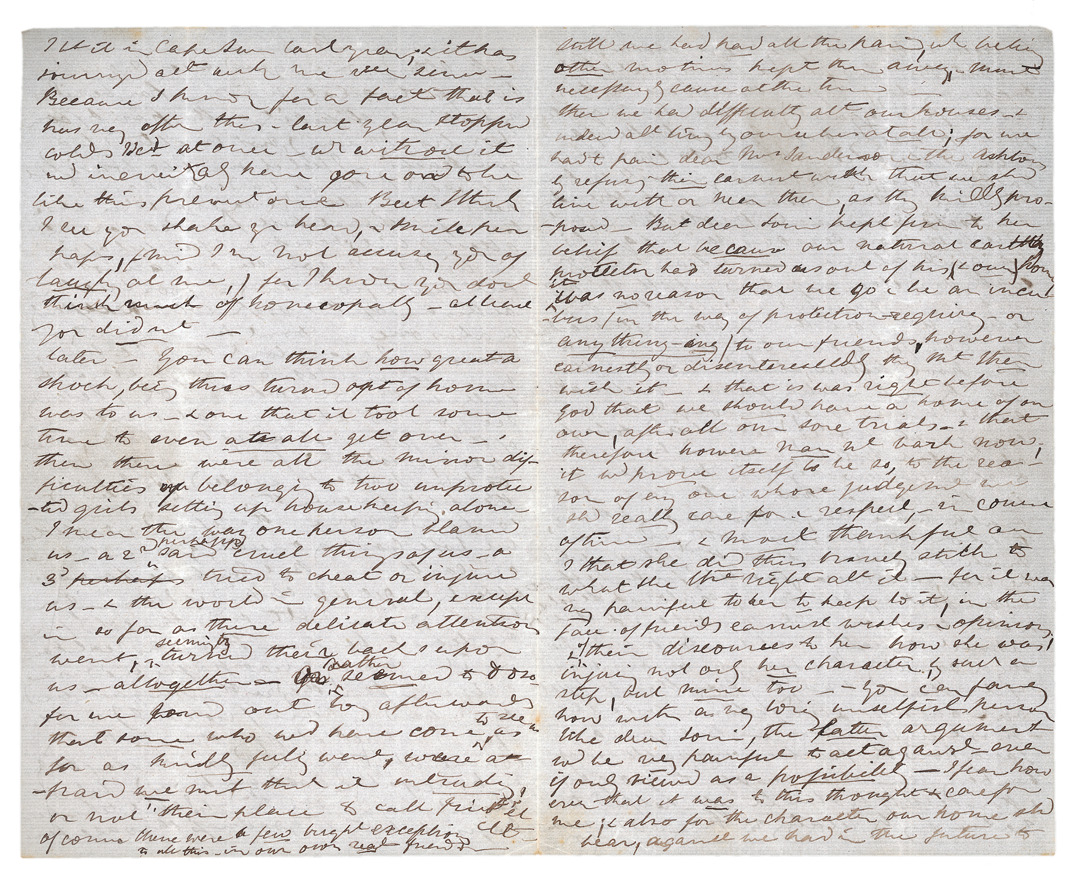 I left it in Cape Town last year, & it has
journeyed all with me ever since –
Because I know for a fact that is
was very often this – last year stopped
colds &c at once – wh without it
wd inevitably have gone on to be
like this present one But I think
I see you shake yr head, & smile per
haps, (mind I'm not accusing you of
laughg at me,) for I know you don't
think much of homeopathy – at least
you didnt –
later – You can think how great a
shock, beig thus turned out of home
was to us – & one that it took some
time to even at all get over –
then there were all the minor dif-
ficulties belongg to two unprotec
-ted girls setting up housekeeping alone
I mean the was one person blamed
us – a 2d perhaps said cruel things of us – a
3d tried to cheat or injure
us – & the world in general, except
in so far as these delicate attentions
went, seemingly turned their backs upon
us – altogether – or rather seemed to do so
for we found out long afterwards
that some who wd have come, to see us
for as kindly wend, were af
-raid we mit that it intrudig,
or not their place to call first &c &c
of course there were a few bright exceptions
to all this – in our own real friends
still we had had all the pain, wh belief
other motives kept them away, must
necessarily cause at the time
then we had difficulty abt our houses – &
indeed abt livg by ourselves at all; for we
had t pain dear Mrs Sanderson & the Ashtons
by refusg their earnest wish that we shd
live with or near them, as they kindly pro-
-posed – But dear kept firm to her
belief that because our natural earthly
protector had turned us out of his (& our) home
it was no reason that we go & be an incu
-bus (in the way of protection-requirig – or
anything-ing) to our friends, however
earnestly or disinterestedly they mt then
wish it – & that it was right before
God that we should have a home of our
own, after all our sore trials – & that
therefore however man wd bark now,
it wd prove itself to be so, to the rea-
son of any one whose judgemt we
shd really care for & respect, – in course
of time – & most thankful am
I that she did thus bravely stick to
what she thot right abt it – for it was
very painful to her to keep to it, in the
face of friends earnest wishes & opinions,
& their discourses to her how she was
injuring not only her character, by such a
step, but mine too – – You can fancy
how with as very lovig unselfish person
like dear the latter argument
wd be very painful to act against even
if only viewed as a possibility – I fear how
ever that it was to this thought & care for
me, & also for the character our home shd
bear, against we had in the future to